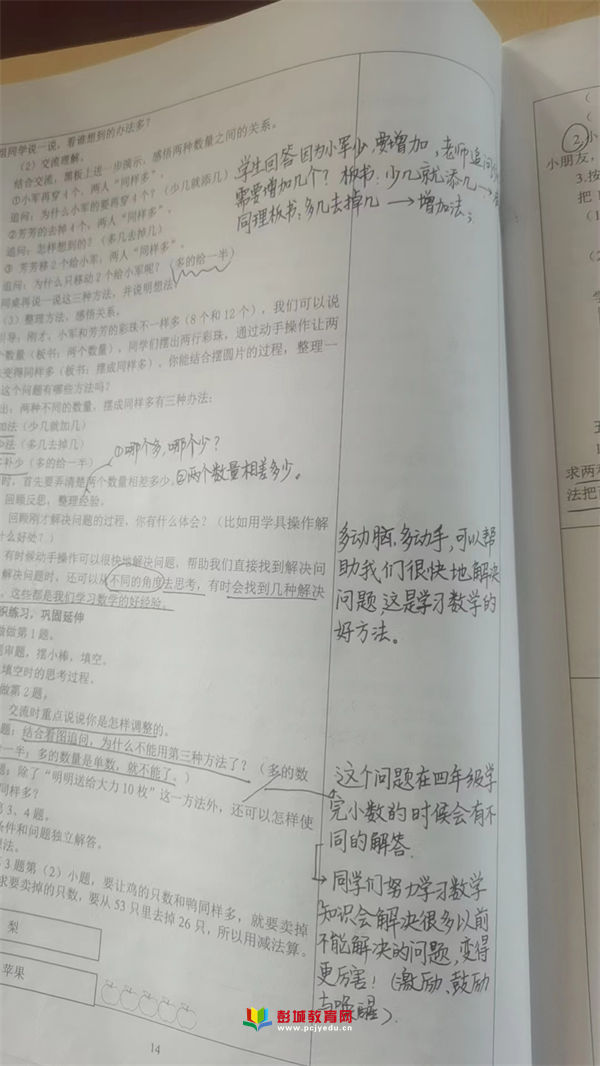 组同学说一说，看谁想到的办法多？
（2）交流理解。
结合交流，黑板上进一步演示，感悟两种数量之间的关系。
①小军再穿4个，两人“同样多”。
追问：为什么小军的要再穿4个？（少几就添几）
②芳芳的去掉4个，两人“同样多”。
追问：怎样想到的？（多几去掉几）
③ 芳芳移2个给小军，两人“同样多”。
追问：为什么只移动2个给小军呢？（多的给一半）
同桌再说一说这三种方法，并说明想法
（3）整理方法，感悟关系。
引导：刚才，小军和芳芳的彩珠不一样多（8个和12个），我们可以说
个数量（板书：两个数量），同学们摆出两行彩珠，通过动手操作让两
变得同样多（板书：摆成同样多），你能结合摆圆片的过程，整理一
这个问题有哪些方法吗？
出：两种不同的数量，摆成同样多有三种办法：
加法（少几就加几）
少法（多几去掉几）
多补少（多的给一半）
时，首先要弄清楚两个数量相差多少。
回顾反思，整理经验。
回顾刚才解决问题的过程，你有什么体会？（比如用学具操作解
什么好处？）
有时候动手操作可以很快地解决问题，帮助我们直接找到解决问
解决问题时，还可以从不同的角度去思考，有时会找到几种解决
。这些都是我们学习数学的好经验。
织练习，巩固延伸
做做第1题。
审题，摆小棒，填空。
填空时的思考过程。
做第2题。
交流时重点说说你是怎样调整的。
题：结合看图追问，为什么不能用第三种方法了？（多的数
一半；多的数量是单数，就不能了。）
题：除了“明明送给大力10枚”这一方法外，还可以怎样使
同样多？
第3、4题。
条件和问题独立解答。
想法。
3题第（2）小题，要让鸡的只数和鸭同样多，就要卖掉
求要卖掉的只数，要从53只里去掉26只，所以用减法算。
梨
苹果
14
学生回答因为小军少，要增加，老师追问
需要增加几个？板书：少几就添几→
同理板书：多几去掉几→增加法；
①哪个多，哪个少？
②两个数量相差多少。
多动脑，多动手，可以帮
助我们很快地解决
问题，这是学习数学的
好方法。
这个问题在四年级学
完小数的时候会有不
同的解答.
→同学们努力学习数学
知识会解决很多以前
不能解决的问题，变得
更厉害！（激励、鼓励
与唤醒）.
②
小朋友，
3.按
把1
（1
（2
求两
法把
彭城教育网
www.pcjyedu.cn